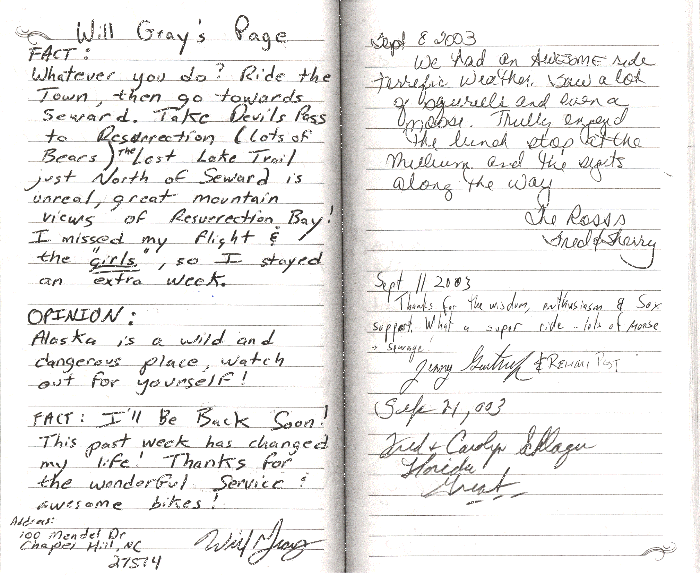 Will Gray's Page
FACT:
Whatever you do? Ride the
Town, then go towards
Seward. Take Devils Pass
to Resurrection (lots of
Bears) The Lost Lake Trail
just North of Seward is
unreal, great mountain
views of Resurrection Bay!
I missed my flight &
the "girls", so I stayed
an extra week.
OPINION:
Alaska is a wild and
dangerous place, watch
out for yourself!
FACT: I'll Be Back Soon!
This past week has changed
my life! Thanks for
the wonderful Service &
awesome bikes!
Address:
100 Mendel Dr
Chapel Hill, NC
27514
Will Gray
Sept 8 2003
We had an AWESOME ride
terrific weather. Saw a lot
of squirels and even a
moose. Trully enjoyed
the lunch stop at the
and the sights
along the way
The Rosss
Fred & Sherry
Sept 11 2003
Thanks for the wisdom, enthusiasm & Sox
support. What a super ride - lots of moose
+ sewage!
Jenny & REMINI POST
Sept 21, 003
Fred & Carolyn
Florida
Great